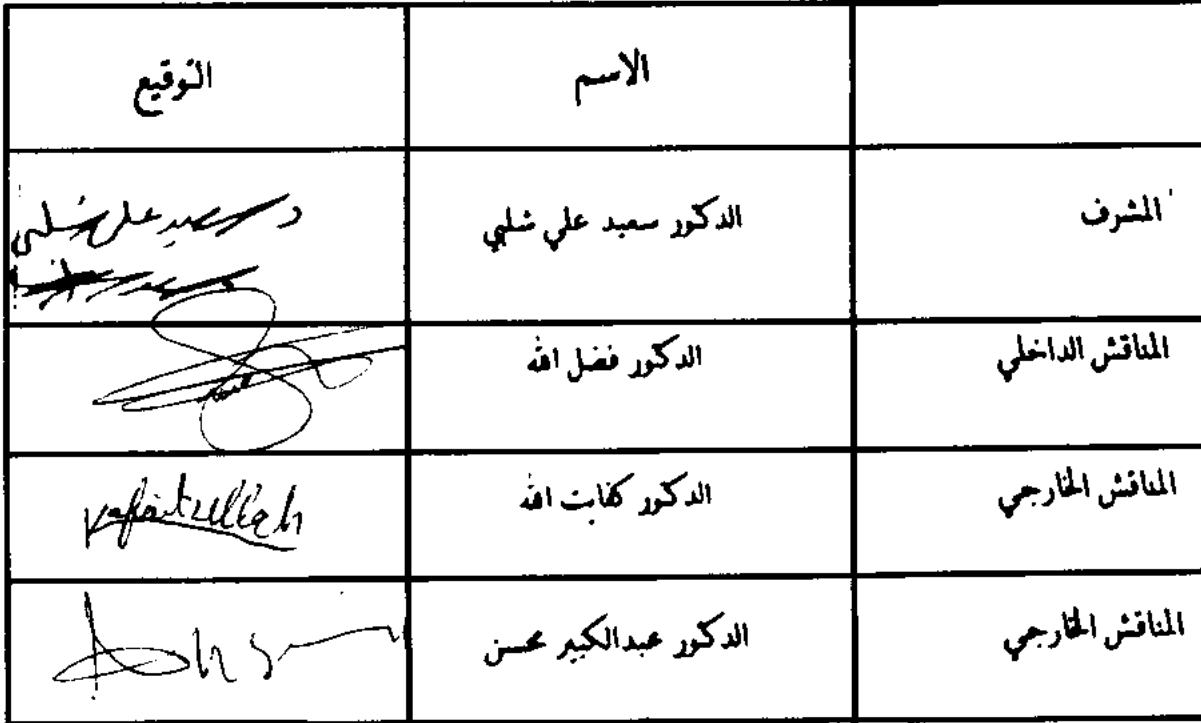 الاسم التوقيع
المشرف الدكتور سعيد علي شلبي د. سعيد علي شلبي
المناقش الداخلي الدكتور فضل الله
المناقش الخارجي الدكتور كفايت الله Kafaitullah
المناقش الخارجي الدكتور عبدالكبير محسن